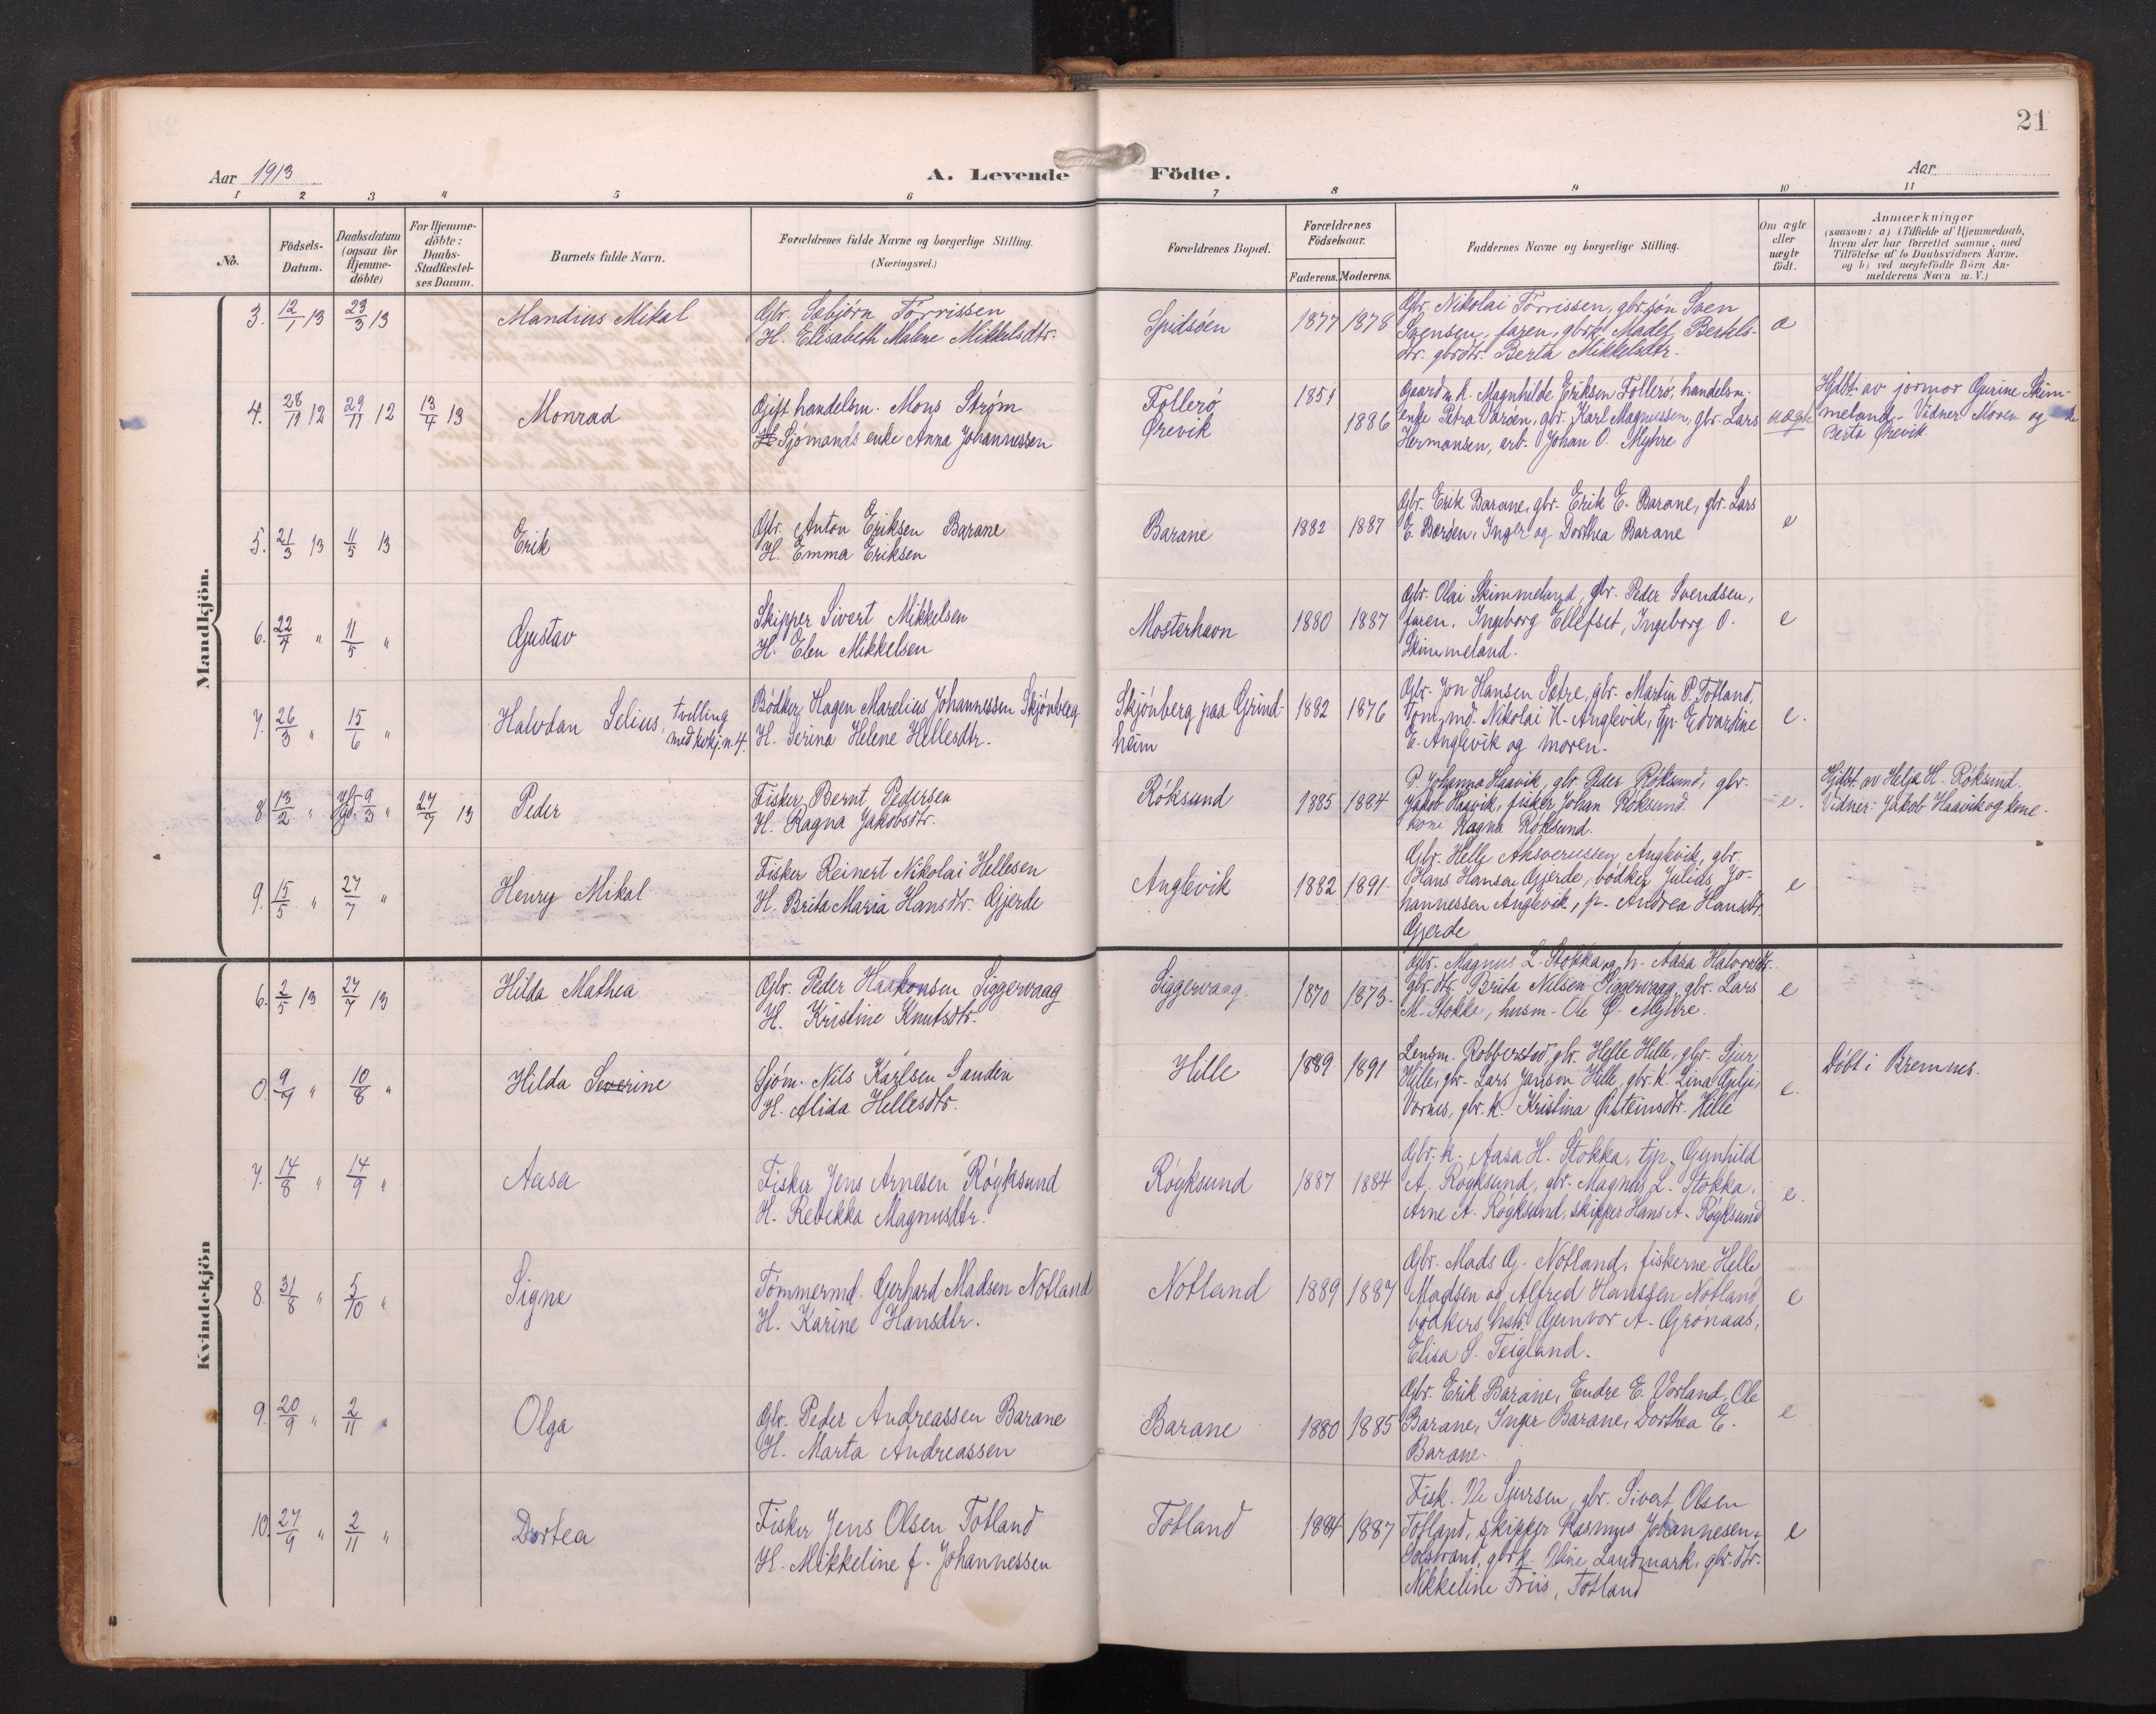 21
Aar 1913
A. Levende Födte.
Aar
1 2 3 4 5 6 7 8 9 10 11
No.
Födsels-Datum.
Daabsdatum (ogsaa for Hjemme-döbte)
For Hjemme-döbte: Daabs-Stadfæstel-ses Datum.
Barnets fulde Navn.
Forældrenes fulde Navne og borgerlige Stilling.
(Næringsvei.)
Forældrenes Bopæl.
Forældrenes Födselsaar.
Faderens. Moderens.
Faddernes Navne og borgerlige Stilling.
Om ægte eller uægte födt.
Anmærkninger
(saasom: a) i Tilfælde af Hjemmedaab,
hvem der har forrettet samme, med
Tilföielse af to Daabsvidners Navne,
og b) ved uægtefödte Börn An-
melderens Navn m. V.)
Mandkjön.
3. 12/1 13 23/3 13 Mandius Mikal
Gbr. Sebjörn Törrissen
H. Elisabeth Malene Mikkelsdtr.
Spidsöen 1877 1878
Gbr. Nikolai Törrissen, gbr.søn Sven
Svensen, faren, gbrk. Madel Bertels-
dtr. gbrdtr. Berta Mikkelsdtr.
e
4. 28/11 12 29/11 12 13/4 13 Monrad
Gift handelsm. Mons Strøm
Sjömands enke Anna Johannessen
Follerö
Örevik
1851
1886
Gaardm.k. Magnhilde Eriksen Follerö, handelsm.
enke Petra Varöen, gbr. Karl Magnussen, gbr. Lars
Hermansen, arb. Johan O. Myhre
uægte
Hjdbt. av jormor Gurine Skim-
meland. Vidner Moren og
Berta Ørevik.
5. 21/3 13 11/5 13 Erik
Gbr. Anton Eriksen Barane
H. Emma Eriksen
Barane 1882 1887
Gbr. Erik Barane, gbr. Erik E. Barane, gbr. Lars
E. Baröen, Inger og Dorthea Barane
e
6. 22/4 " 11/5 " Gustav
Skipper Sivert Mikkelsen
H. Elen Mikkelsen
Mosterhavn 1880 1887
Gbr. Olai Skimmeland, gbr. Peder Svendsen,
faren, Ingeborg Ellefset, Ingeborg O.
Skimmeland.
e
7. 26/3 " 15/6 " Halvdan Selius, tvilling
med kvkj. n. 4
Bödker Hagen Marelius Johannessen Skjönberg
H. Serina Helene Hellesdtr.
Skjönberg paa Grind-
heim
1882 1876
Gbr. Jon Hansen Sætre, gbr. Martin P. Totland,
tömmd. Nikolai H. Anglevik, tjp. Edvardine
E. Anglevik og moren.
e.
8 13/2 " 9/3 " 27/7 13 Peder
Fisker Bernt Pedersen
H. Ragna Jakobsdtr.
Röksund 1885 1884
P. Johanna Haavik, gbr. Peder Röksund, gbr.
Jakob Haavik, fisker Johan Röksund.
kone Ragna Röksund.
e.
Hjdbt. av Helje H. Röksund.
Vidner: Jakob Haavik og kone.
9. 15/5 " 27/7 " Henry Mikal
Fisker Reinert Nikolai Hellesen
H. Brita Maria Hansdtr. Gjerde
Anglevik 1882 1891
Gbr. Helle Ahsverussen Anglevik, gbr.
Hans Hansen Gjerde, bödker Julius Jo-
hannessen Anglevik, p. Andrea Hansdtr.
Gjerde
e
Kvindekjön
6. 2/5 13 27/7 13 Hilda Mathea
Gbr. Peder Haakonsen Siggervaag
H. Kristine Knutsdtr.
Siggervaag 1870 1873
Gbr. Magnus L. Stokka og h. Aasa Halvorsdtr.
gbr.dtr. Brita Nilsen Siggervaag, gbr. Lars
M. Stokka, husm. Ole Ø. Myhre.
e
0. 9/7 " 10/8 " Hilda Severine
Sjöm. Nils Karlsen Sanden
H. Alida Hellesdtr.
Hille 1889 1891
Lensm. Robberstad, gbr. Helle Hille, gbr. Sjur
Hille, gbr. Lars Jansen Hille, gbr.k. Lina Gilje,
Vornes, gbr.k. Kristina Östeinsdtr. Hille
e.
Döbt i Bremnes.
7. 14/8 " 14/9 " Aasa
Fisker Jens Arnesen Röyksund
H. Rebekka Magnusdtr.
Röyksund 1887 1884
Gbr.k. Aasa H. Stokka, tjp. Gunhild
A. Röyksund, gbr. Magnus L. Stokka,
Arne A. Röyksund, skipper Hans A. Röyksund
e.
8. 31/8 " 5/10 " Signe
Tömmermd. Gerhard Madsen Notland
H. Karine Hansdtr.
Notland 1889 1887
Gbr. Mads G. Notland, fiskerne Helle
Madsen og Alfred Hanssen Notland
bödkers hstr. Gunvor A. Grönaas,
Elisa S. Teigland.
e
9. 20/9 " 2/11 " Olga
Gbr. Peder Andreassen Barane
H. Marta Andreassen
Barane 1880 1885
Gbr. Erik Barane, Endre E. Vorland, Ole
Barane, Inger Barane, Dorthea E.
Barane.
e
10. 27/9 " 2/11 " Dortea
Fisker Jens Olsen Totland
H. Mikkeline f. Johannessen
Totland 1884 1887
Fisk. Ole Sjursen, gbr. Sivert Olsen
Totland, skipper Rasmus Johannesen,
Solstrand, gbrk. Oline Landmark, gbr.dtr.
Nikkeline Friis, Totland
e